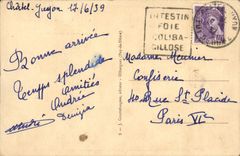 Châtel-Guyon 17/6/39
Bonne arrivée
Temps splendide
Amitiés
Andrée
INTESTIN
FOIE
COLIBA-
CILLOSE
Madame Meunier
Confiserie
40 Rue St Placide
Paris VIe